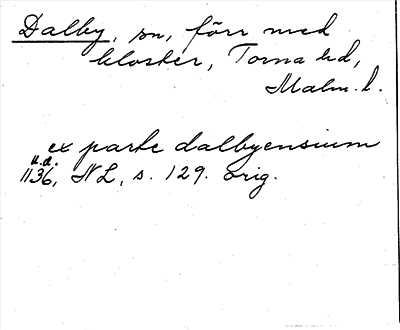 Dalby, sn, förr med
kloster, Torna hd,
Malm. l.
ex parte dalbyensium
u.a.
1136, NL, s. 129. orig.